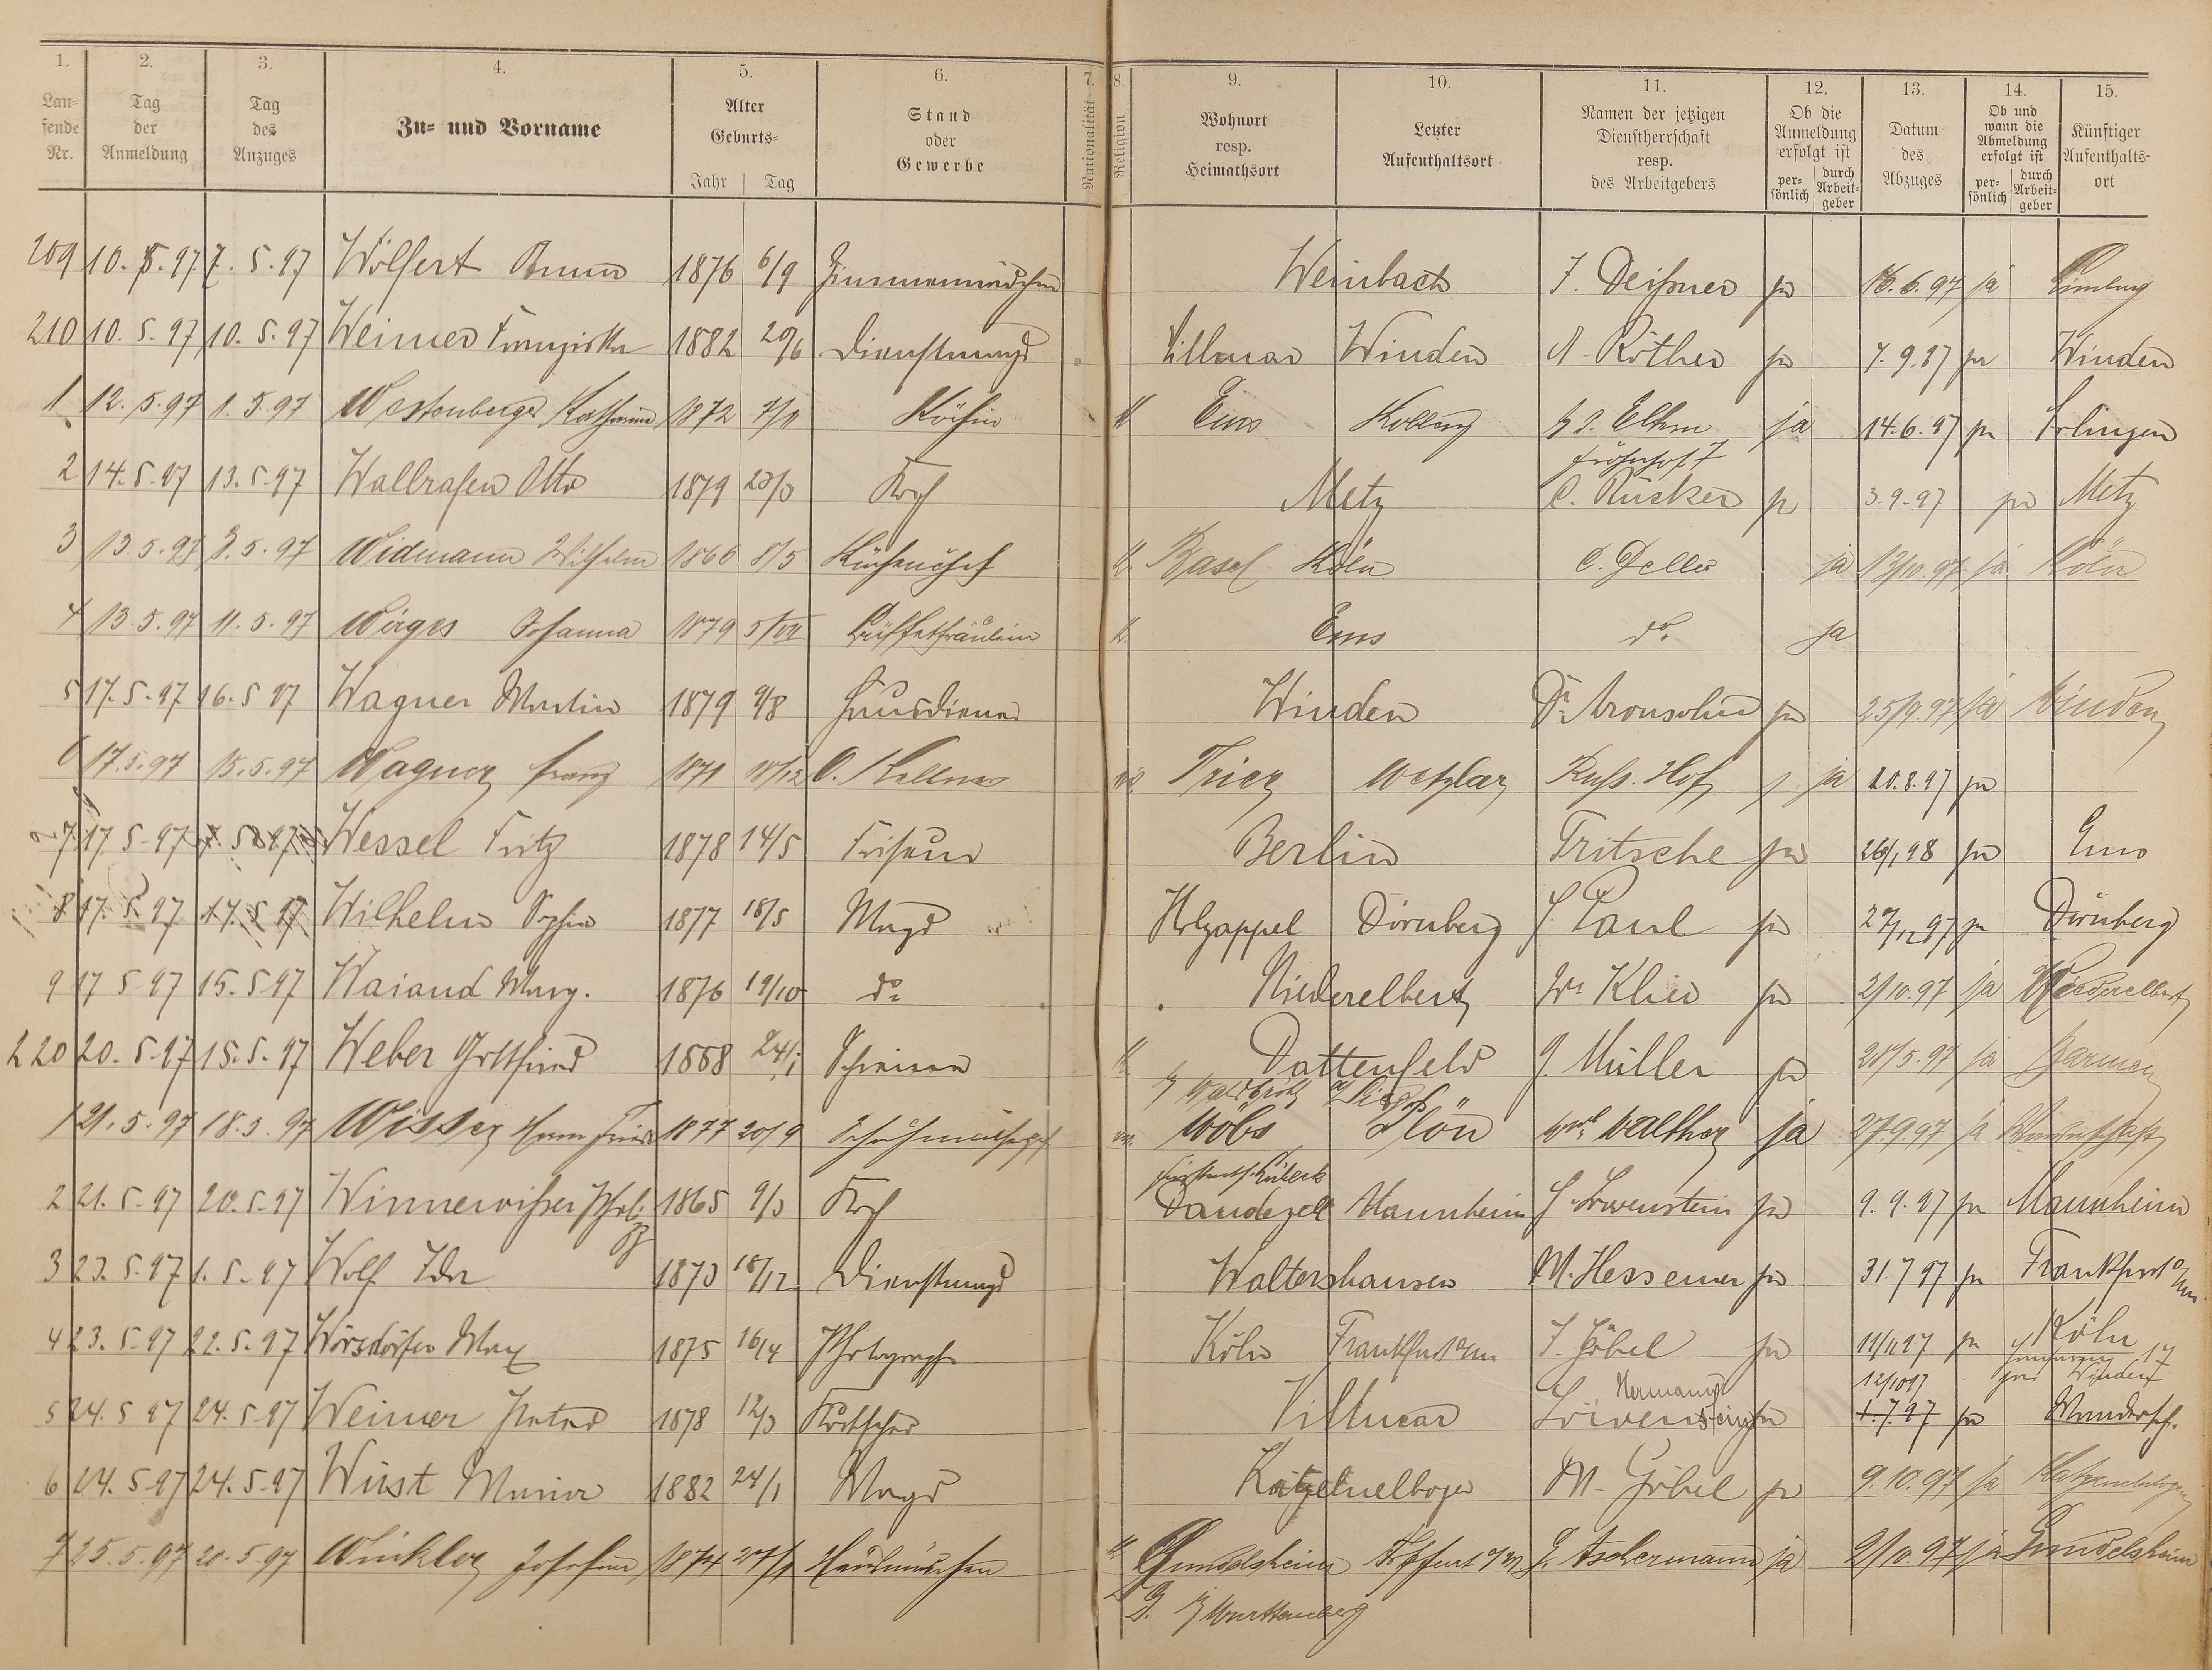 1. 2. 3. 4. 5. 6. 7. 8. 9. 10. 11. 12. 13. 14. 15.
Lau- fende Nr. Tag der Anmeldung Tag des Anzuges Zu- und Vorname Alter Geburts- Jahr Tag Stand oder Gewerbe Nationalität Religion Wohnort resp. Heimathsort Letzter Aufenthaltsort Namen der jetzigen Dienstherrschaft resp. des Arbeitgebers Ob die Anmeldung erfolgt ist per- sönlich durch Arbeit- geber Datum des Abzuges Ob und wann die Abmeldung erfolgt ist per- sönlich durch Arbeit- geber Künftiger Aufenthalts- ort
209 10. 5. 97 7. 5. 97 Wölfert Anna 1876 6/9 Zimmermädchen Weinbach J. Deißner ja 16. 6. 97 ja Limburg
210 10. 5. 97 10. 5. 97 Weimer Franziska 1882 20/6 Dienstmagd Villmar Winden A Röther ja 7. 9. 97 ja Winden
1 12. 5. 97 1. 5. 97 Westenberger Katharina 1872 7/11 Köchin K Ems Koblenz Elhm ja 14. 6. 97 ja
2 14. 5. 97 13. 5. 97 Wallrafen Otto 1879 Koch Metz C. Rücker ja 3. 9. 97 ja Metz
3 13. 5. 97 3. 5. 97 Widmann Wilhelm 1866 8/5 Küchenchef K. Basel Köln C. Delles ja 13/10. 97 ja Köln
4 13. 5. 97 11. 5. 97 Wirges Johanna 1879 5/VII Büffetfräulein K. Ems do. ja
5 17. 5. 97 16. 5 97 Wagner Martin 1879 9/8 Hausdiener Winden Dr. Aronsohn ja 25/9. 97 ja Winden
6 17. 5. 97 15. 5. 97 Wagner Franz 1871 O. Kellner Trier Wetzlar Russ. Hof ja 20. 8. 97 ja
7. 17 5. 97 Wessel Fritz 1878 14/5 Friseur Berlin Fritsche ja 26/1 98 ja Ems
8 17. 5. 97 17. 5 97 Wilhelm Sophie 1877 18/5 Magd Holzappel Dörnberg J. Paul ja ja Dörnberg
9 17 5 97 15. 5 97 Waiand Marg. 1876 19/10 do. Niederelbert Klier ja 2/10. 97 ja Niederelbert
220 20. 5. 97 15. 5. 97 Weber Gottfried 1868 24/1 Schreiner K Dattenfeld J. Müller ja 28/5. 97 ja Barmen
1 21. 5. 97 18. 5. 97 Wisser 1877 20/9 Wöbs Plön Walther ja 27. 9. 97 ja Wanderschaft
2 21. 5. 97 20. 5. 97 Winnewisser 1865 9/3 Koch Daudezell Mannheim Löwenstein ja 9. 9. 97 ja Mannheim
3 23. 5. 97 1. 5. 97 Wolf Ida 1873 18/12 Dienstmagd Waltershausen M. Hessemer ja 31. 7 97 ja Frankfurt a/M
4 23. 5. 97 22. 5. 97 Wörsdörfer Max 1875 16/4 Photograph Köln Frankfurt a/M J. Göbel ja 11/1. 97 ja Köln
5 24. 5 97 24. 5 97 Weimer Peter 1878 12/3 Kutscher Villmar Hermann Löwenstein ja 12/10 97 1. 7. 97 ja Wandersch.
6 24. 5 97 24. 5. 97 Wüst Maria 1882 24/1 Magd Katzenelnbogen M. Göbel ja 9. 10. 97 ja Katzenelnbogen
7 25. 5. 97 20. 5. 97 Winkler Josefine 1874 Hausmädchen K Gundelsheim Frkfurt a/M. G. Aschermann ja 2/10. 97 ja Gundelsheim
Württemberg